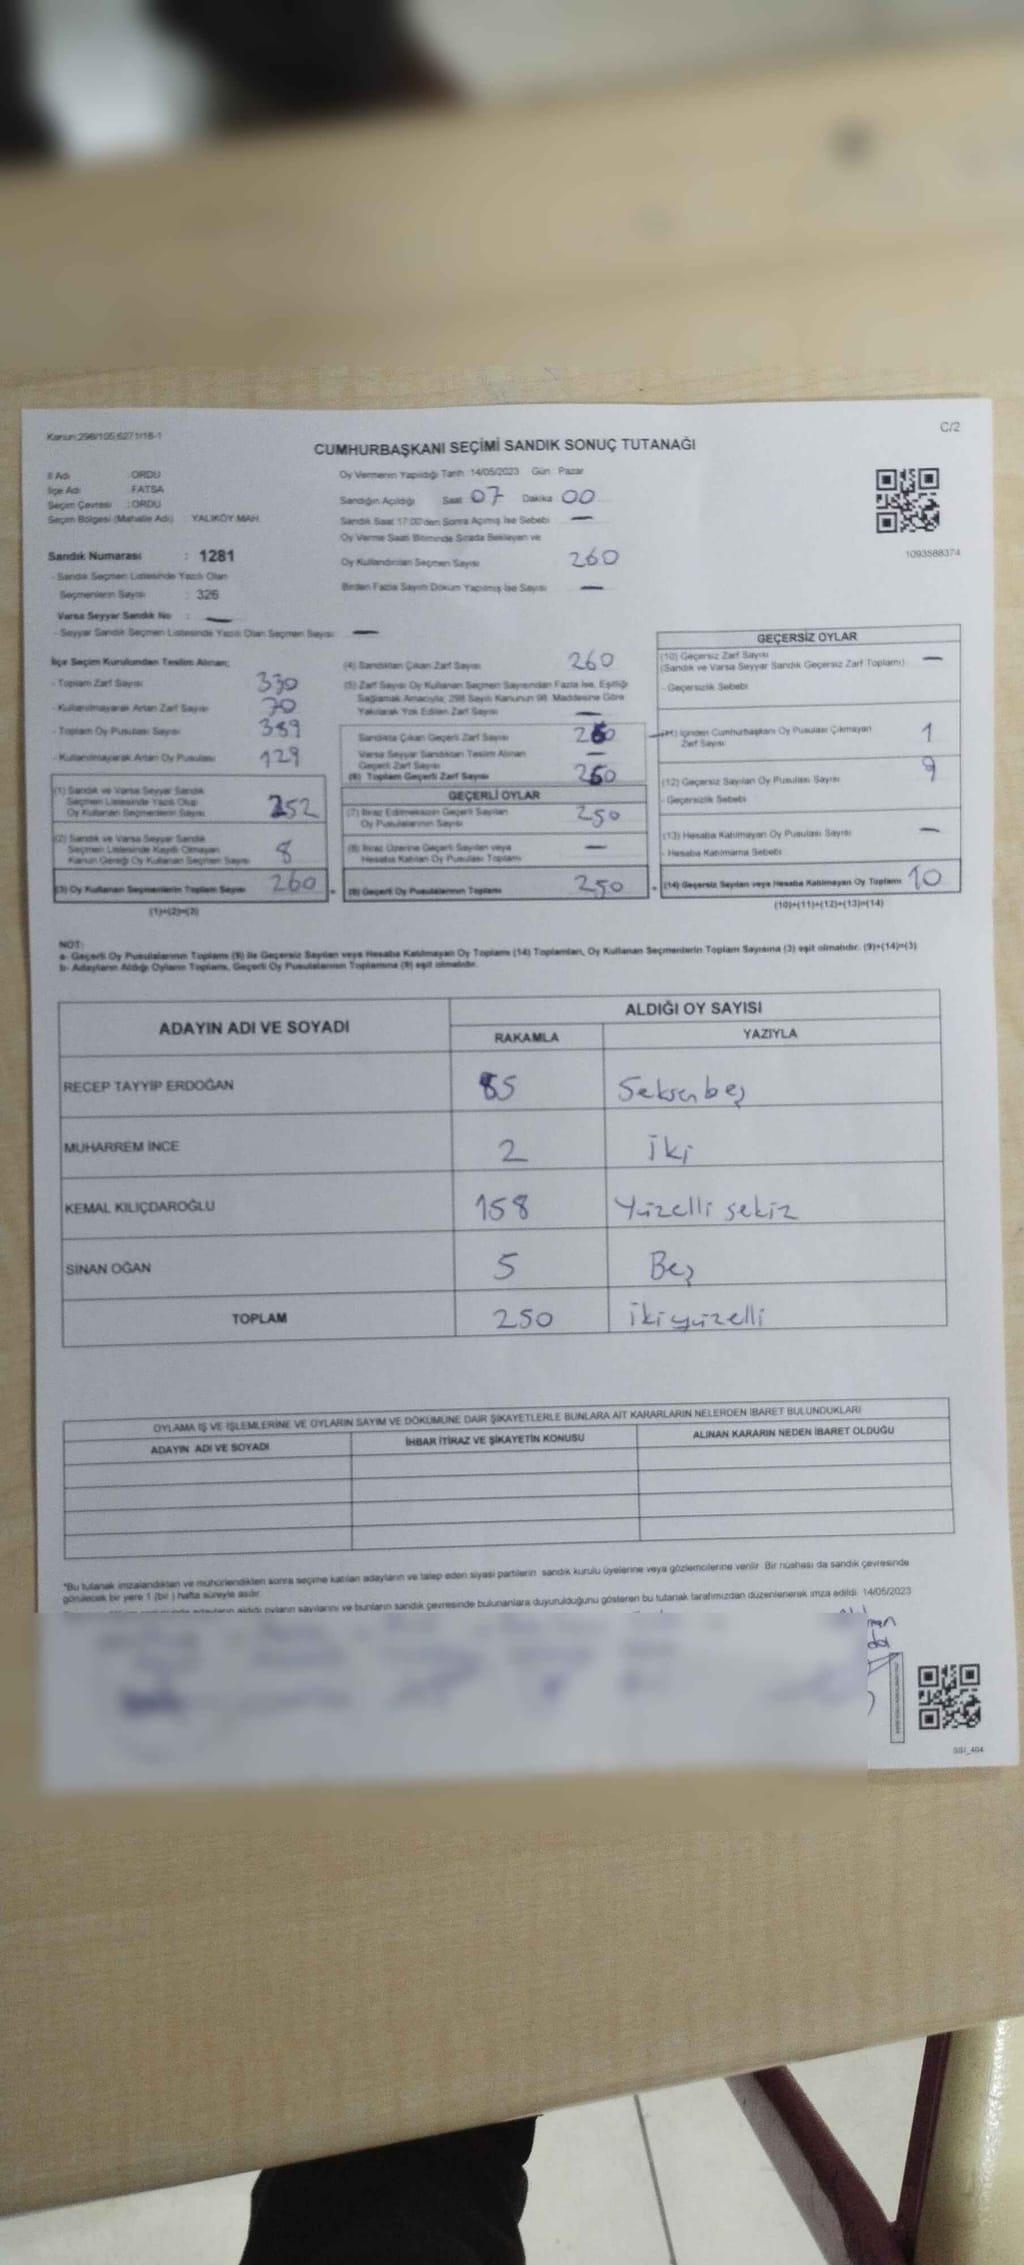 Kanun:298/105,6271/18-1
C/2
CUMHURBAŞKANI SEÇİMİ SANDIK SONUÇ TUTANAĞI
İl Adı : ORDU
İlçe Adı : FATSA
Seçim Çevresi : ORDU
Seçim Bölgesi (Mahalle Adı) YALIKÖY MAH.
Sandık Numarası : 1281
- Sandık Seçmen Listesinde Yazılı Olan
Seçmenlerin Sayısı : 326
Varsa Seyyar Sandık No : —
- Seyyar Sandık Seçmen Listesinde Yazılı Olan Seçmen Sayısı —
Oy Vermenin Yapıldığı Tarih 14/05/2023 Gün Pazar
Sandığın Açıldığı Saat 07 Dakika 00
Sandık Saat 17:00'den Sonra Açılmış İse Sebebi —
Oy Verme Saati Bitiminde Sırada Bekleyen ve
Oy Kullandırılan Seçmen Sayısı 260
Birden Fazla Sayım Döküm Yapılmış İse Sayısı —
1093588374
İlçe Seçim Kurulundan Teslim Alınan;
- Toplam Zarf Sayısı 330
- Kullanılmayarak Artan Zarf Sayısı 70
- Toplam Oy Pusulası Sayısı 389
- Kullanılmayarak Artan Oy Pusulası 129
(1) Sandık ve Varsa Seyyar Sandık
Seçmen Listesinde Yazılı Olup
Oy Kullanan Seçmenlerin Sayısı 252
(2) Sandık ve Varsa Seyyar Sandık
Seçmen Listesinde Kayıtlı Olmayan
Kanun Gereği Oy Kullanan Seçmen Sayısı 8
(3) Oy Kullanan Seçmenlerin Toplam Sayısı 260
(1)+(2)=(3)
(4) Sandıktan Çıkan Zarf Sayısı 260
(5) Zarf Sayısı Oy Kullanan Seçmen Sayısından Fazla İse, Eşitliği
Sağlamak Amacıyla; 298 Sayılı Kanunun 98. Maddesine Göre
Yakılarak Yok Edilen Zarf Sayısı —
Sandıkta Çıkan Geçerli Zarf Sayısı 260
Varsa Seyyar Sandıktan Teslim Alınan
Geçerli Zarf Sayısı —
(6) Toplam Geçerli Zarf Sayısı 260
GEÇERLİ OYLAR
(7) İtiraz Edilmeksizin Geçerli Sayılan
Oy Pusulalarının Sayısı 250
(8) İtiraz Üzerine Geçerli Sayılan veya
Hesaba Katılan Oy Pusulası Toplamı —
(9) Geçerli Oy Pusulalarının Toplamı 250
GEÇERSİZ OYLAR
(10) Geçersiz Zarf Sayısı
(Sandık ve Varsa Seyyar Sandık Geçersiz Zarf Toplamı) —
- Geçersizlik Sebebi
(11) İçinden Cumhurbaşkanı Oy Pusulası Çıkmayan
Zarf Sayısı 1
(12) Geçersiz Sayılan Oy Pusulası Sayısı 9
- Geçersizlik Sebebi
(13) Hesaba Katılmayan Oy Pusulası Sayısı —
- Hesaba Katılmama Sebebi
(14) Geçersiz Sayılan veya Hesaba Katılmayan Oy Toplamı 10
(10)+(11)+(12)+(13)=(14)
NOT:
a- Geçerli Oy Pusulalarının Toplamı (9) ile Geçersiz Sayılan veya Hesaba Katılmayan Oy Toplamı (14) Toplamları, Oy Kullanan Seçmenlerin Toplam Sayısına (3) eşit olmalıdır. (9)+(14)=(3)
b- Adayların Aldığı Oyların Toplamı, Geçerli Oy Pusulalarının Toplamına (9) eşit olmalıdır.
ADAYIN ADI VE SOYADI
ALDIĞI OY SAYISI
RAKAMLA YAZIYLA
RECEP TAYYİP ERDOĞAN 85 Seksenbeş
MUHARREM İNCE 2 iki
KEMAL KILIÇDAROĞLU 158 Yüzelli sekiz
SİNAN OĞAN 5 Beş
TOPLAM 250 ikiyüzelli
OYLAMA İŞ VE İŞLEMLERİNE VE OYLARIN SAYIM VE DÖKÜMÜNE DAİR ŞİKAYETLERLE BUNLARA AİT KARARLARIN NELERDEN İBARET BULUNDUKLARI
ADAYIN ADI VE SOYADI İHBAR İTİRAZ VE ŞİKAYETİN KONUSU ALINAN KARARIN NEDEN İBARET OLDUĞU
*Bu tutanak imzalandıktan ve mühürlendikten sonra seçime katılan adayların ve talep eden siyasi partilerin sandık kurulu üyelerine veya gözlemcilerine verilir. Bir nüshası da sandık çevresinde
görülecek bir yere 1 (bir) hafta süreyle asılır.
adayların aldığı oyların sayılarını ve bunların sandık çevresinde bulunanlara duyurulduğunu gösteren bu tutanak tarafımızdan düzenlenerek imza edildi. 14/05/2023
SSI_404